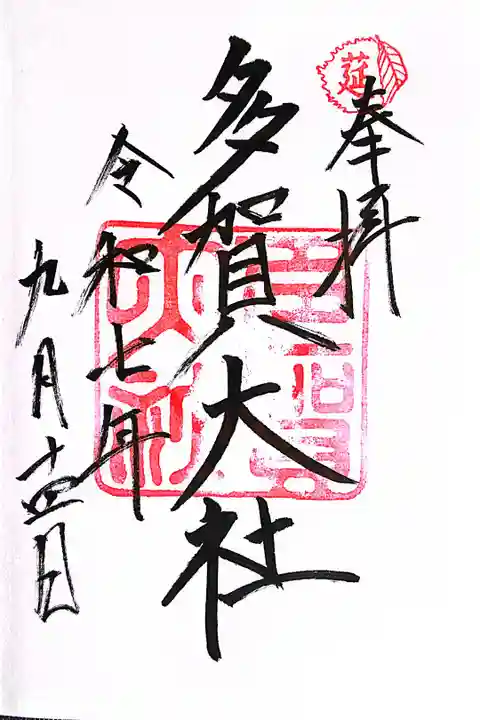 莚
奉拝
多賀大社
令和七年
九月十四日